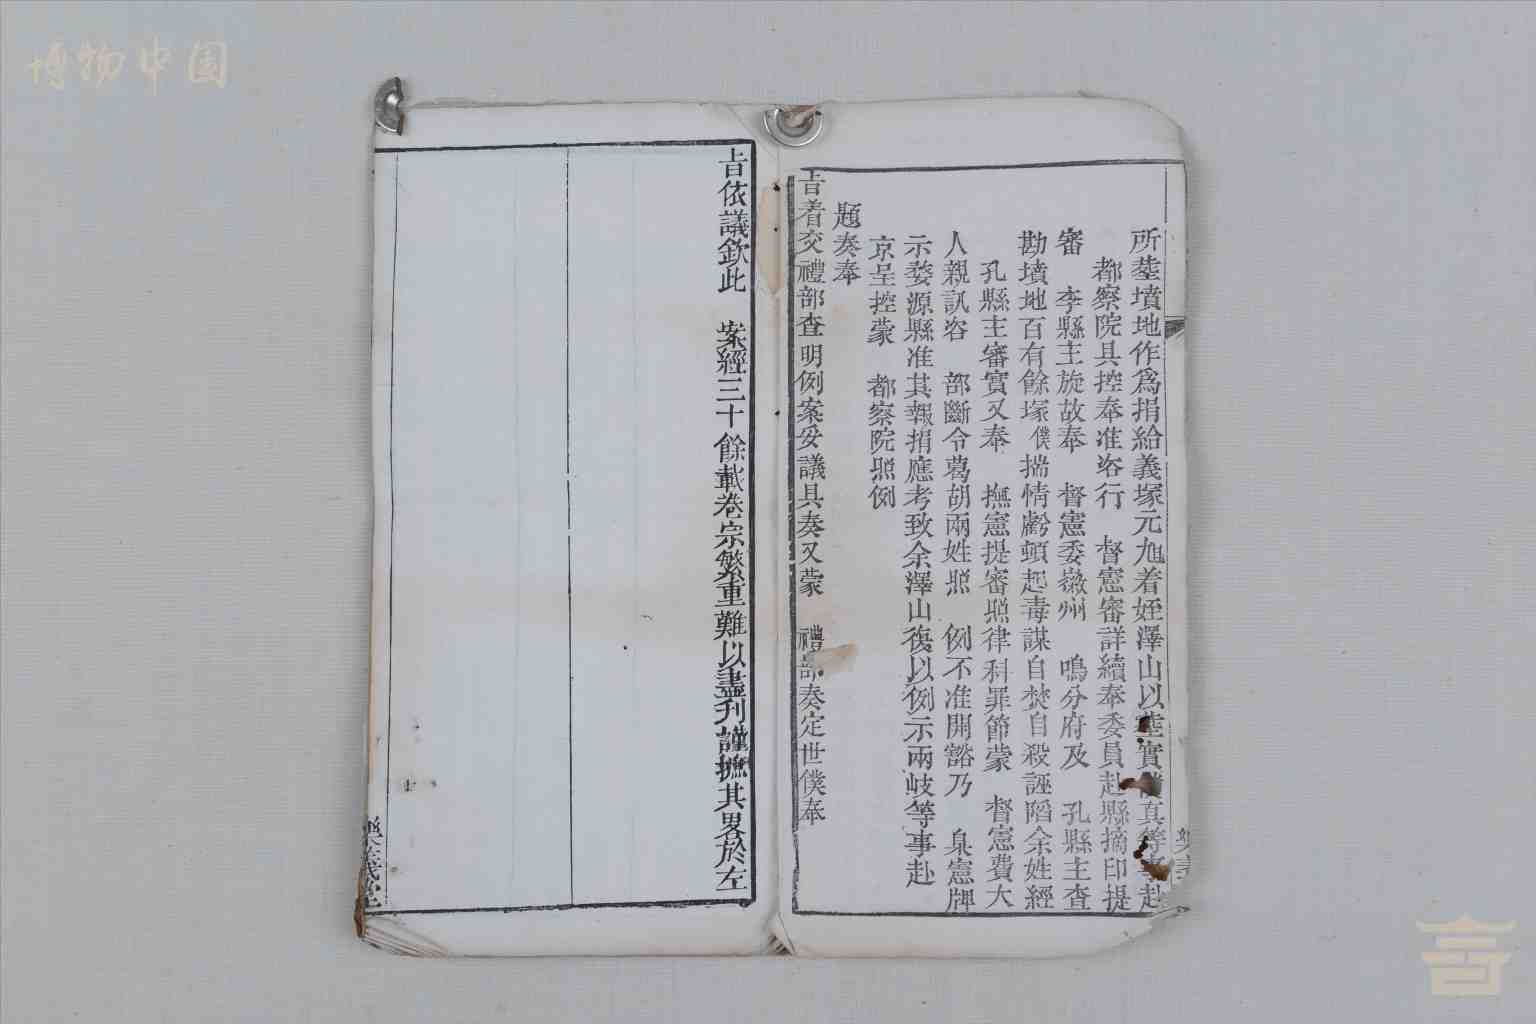 博物中国
所塟墳地作爲捐給義塚元旭着姪澤山以塟實僕真等事赴
都察院具控奉准咨行　督憲審詳續奉委員赴縣摘印提
審　李縣主旋故奉　督憲委徽州　鳴分府及　孔縣主查
勘墳地百有餘塚僕揣情虧頓起毒謀自焚自殺誣陷余姓經
孔縣主審實又奉　撫憲提審照律科罪節蒙　督憲費大
人親訊咨　部斷令葛胡兩姓照　例不准開豁乃　臬憲牌
示婺源縣准其報捐應考致余澤山復以例示兩岐等事赴
京呈控蒙　都察院照例
題奏奉
旨着交禮部查明例案妥議具奏又蒙　禮部奏定世僕奉
旨依議欽此　案經三十餘載卷宗繁重難以盡刋謹摭其畧於左
樂義堂